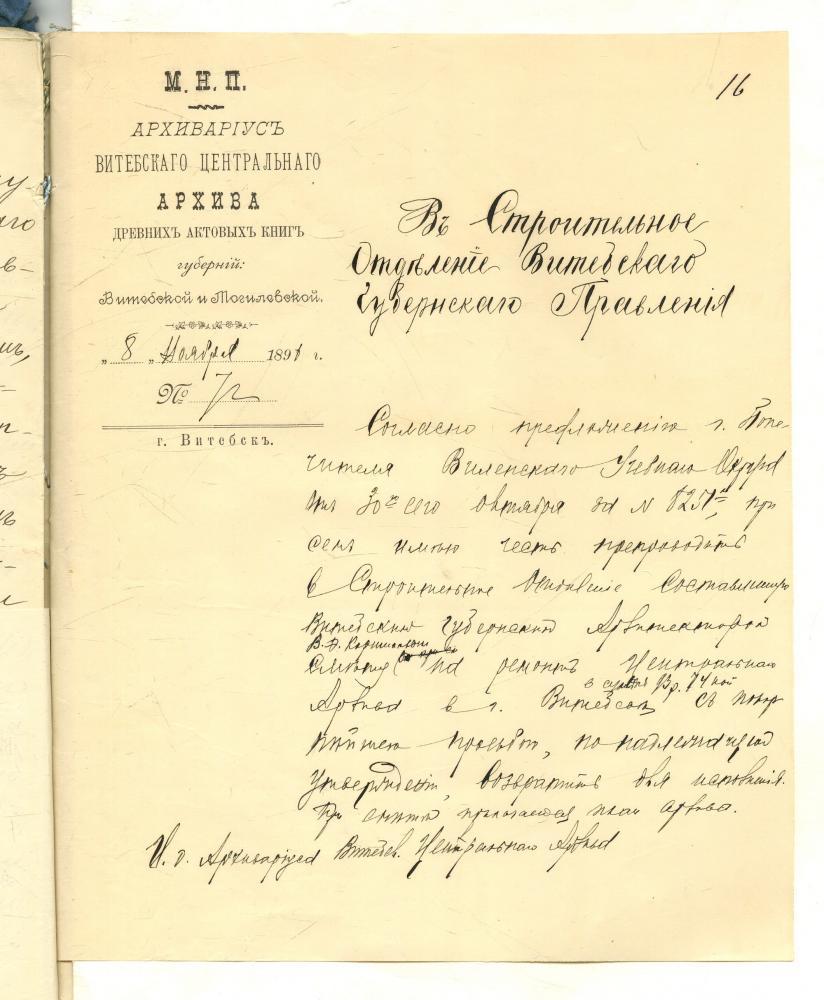 16
М. Н. П.
АРХИВАРІУСЪ
ВИТЕБСКАГО ЦЕНТРАЛЬНАГО
АРХИВА
ДРЕВНИХЪ АКТОВЫХЪ КНИГЪ
губерній:
Витебской и Могилевской.
„ 8 „ Ноября 1891 г.
№ 72
г. Витебскъ.
Въ Строительное
Отдѣленіе Витебскаго
Губернскаго Правленія
Согласно предложенію г. Попе-
чителя Виленскаго Учебнаго Округа
отъ 30го сего октября за N при
семъ имѣю честь препроводить
в Строительное Отдѣленіе составленную
Витебскимъ Губернскимъ Архитекторомъ
В. Ф.
смѣту на ремонтъ Центральнаго
в суммѣ 93 р. 74 коп
Архива в г. Витебскѣ, съ покор
нѣйшею просьбою, по надлежащем
утвержденіи, возвратить для исполненія.
При смѣтѣ прилагается планъ архива.
И. о. Архиваріуса Витебск. Центральнаго Архива